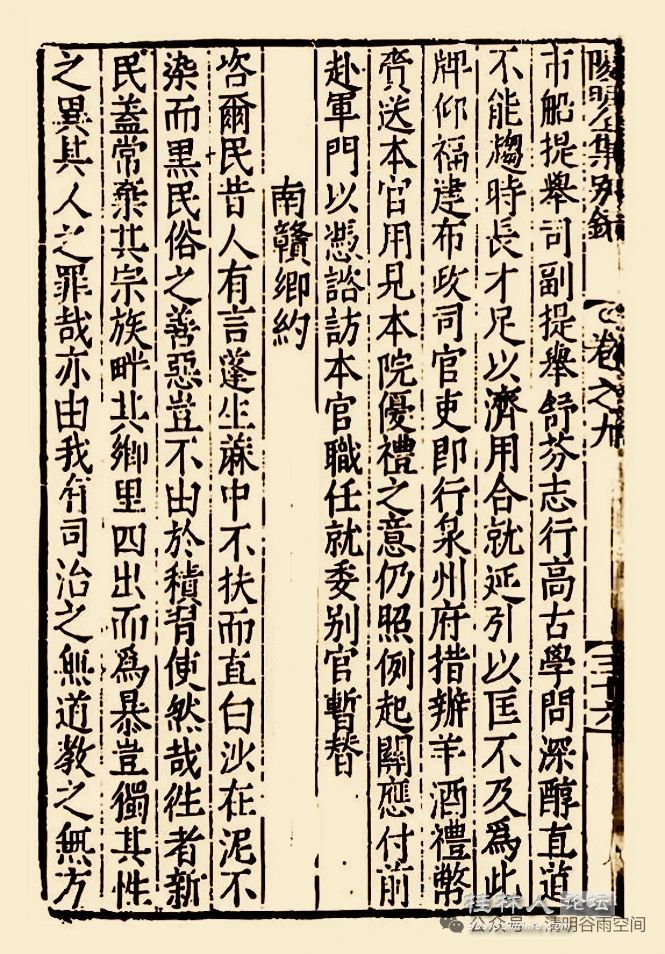 陽明全集别錄 卷之九 三十六
市船提舉司副提舉舒芬志行高古學問深醇直道
不能趨時長才足以濟用合就延引以匡不及爲此
牌仰福建布政司官吏即行泉州府措辦羊酒禮幣
賫送本官用見本院優禮之意仍照例起關應付前
赴軍門以憑諮訪本官職任就委别官暫替
南贛鄉約
咨爾民昔人有言蓬生蔴中不扶而直白沙在泥不
染而黑民俗之善惡豈不由於積習使然哉徃者新
民蓋常棄其宗族畔其鄉里四出而爲暴豈獨其性
之異其人之罪哉亦由我有司治之無道教之無方
桂林人论坛
公众号 · 清明谷雨空间